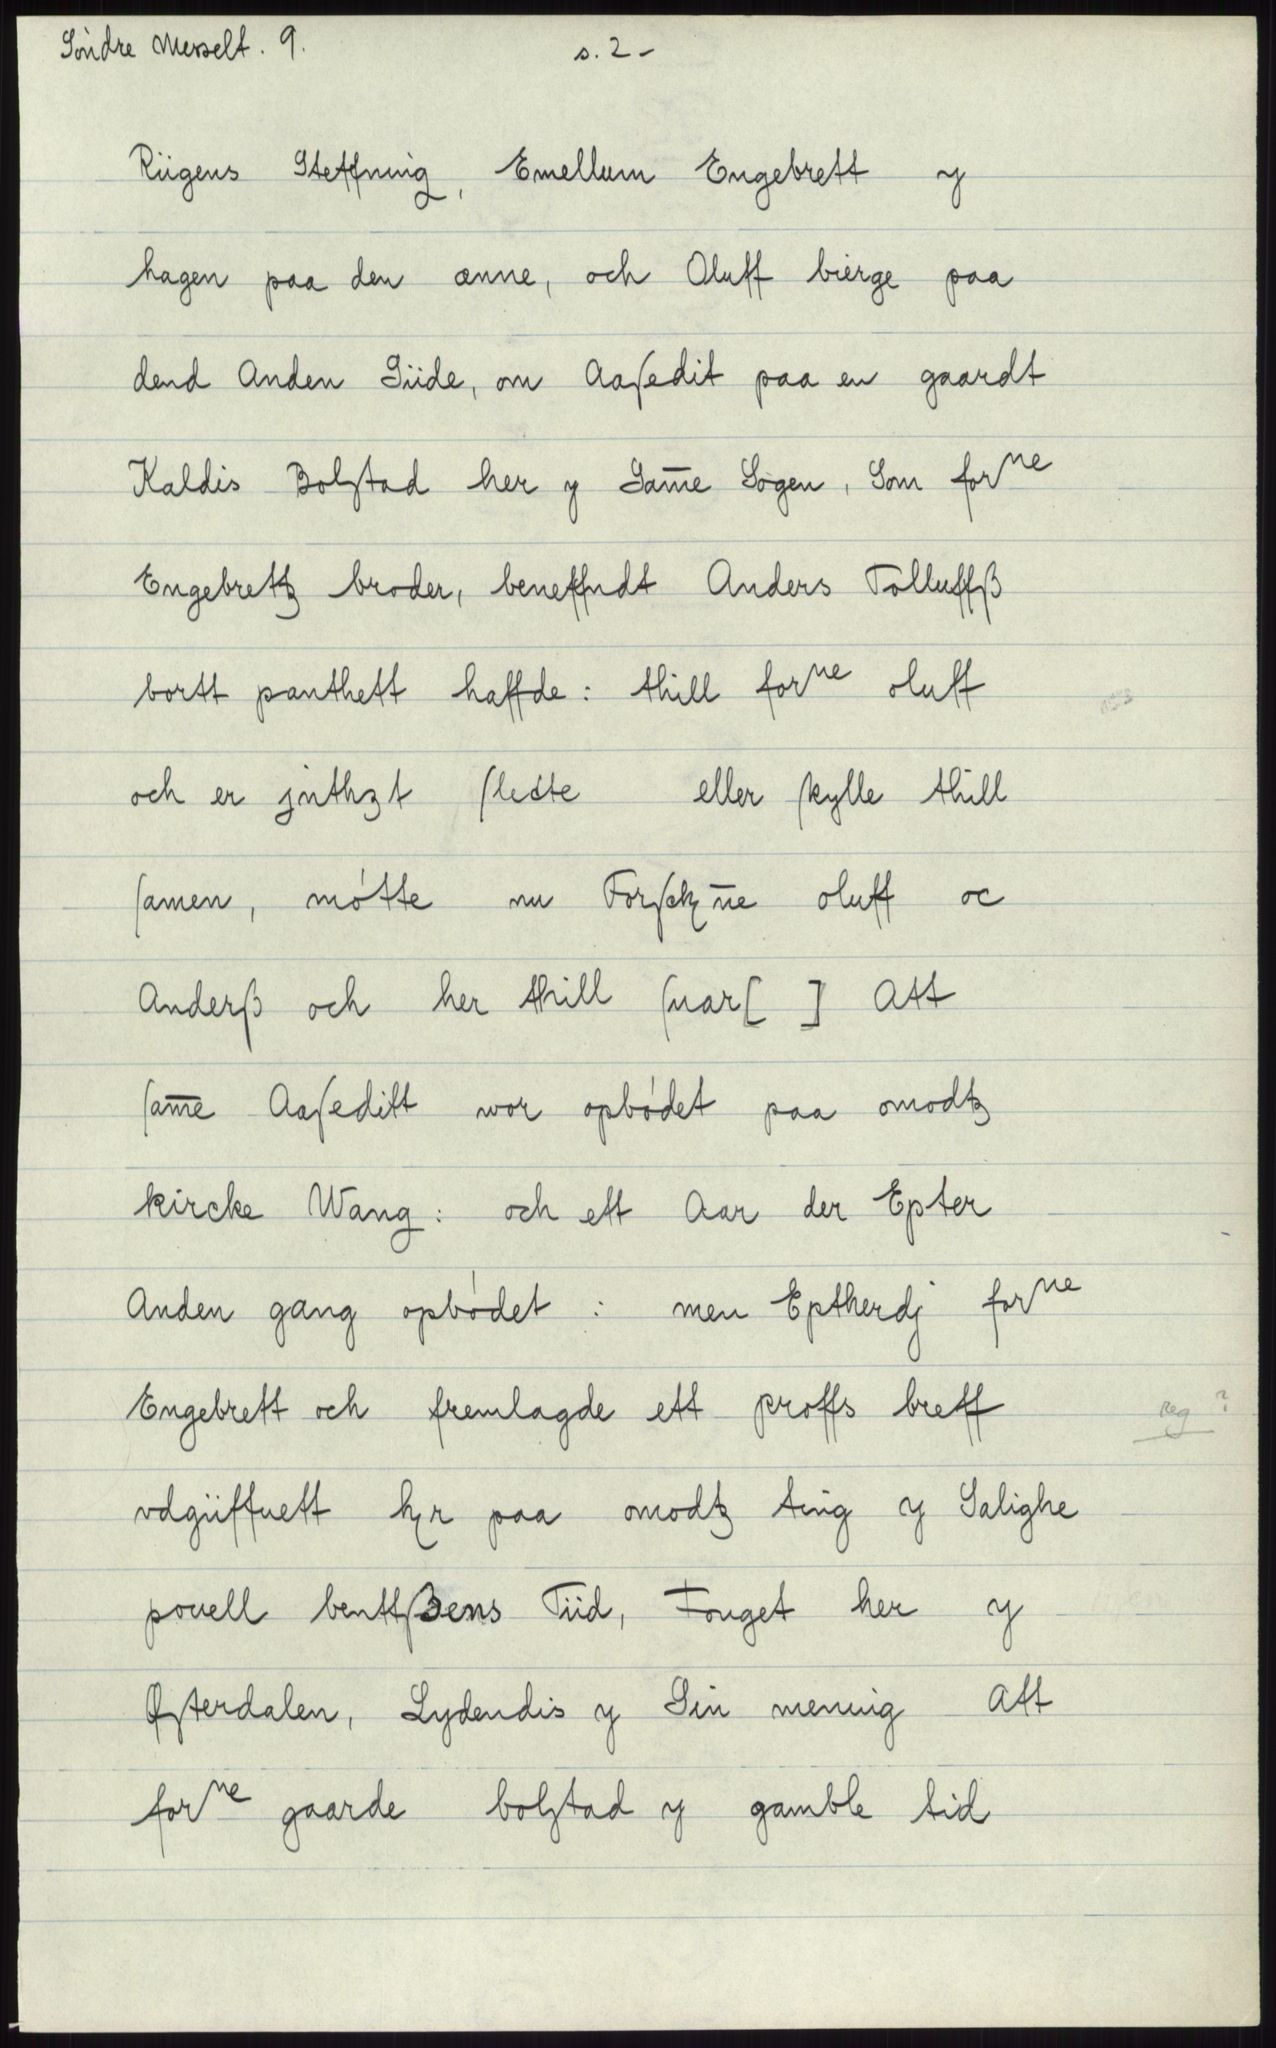 Söndre Messelt. 9. s. 2 -
Riigens Steffning, Emellum Engebrett y
hagen paa den œnne, och Oluff bierge paa
dend Anden Siide, om Aaſedit paa en gaardt
Kaldis Bolſtad her y Sam̅e Sogen, Som forⁿᵉ
Engebretz broder, beneffndt Anders Tolluffß
bortt panthett haffde: thill forⁿᵉ oluff
och er jnthzt ſlecte eller ſkylle thill
ſamen, mótte nu oluff oc
Anderß och her thill ſuar[ ] Att
ſam̅e Aaſeditt wor opbódet paa omodtz
kircke Wang: och ett Aar der Epter
Anden gang opbódet : men Eptherdj forⁿᵉ
Engebrett och fremlagde ett proffs breff
Reg ?
vdgiiffuett her paa omodtz ting y Salighe
pouell benttßens Tiid, Fouget her y
Øſterdalen, Lydendis y Sin mening Att
forⁿᵉ gaarde bolſtad y gamble tid